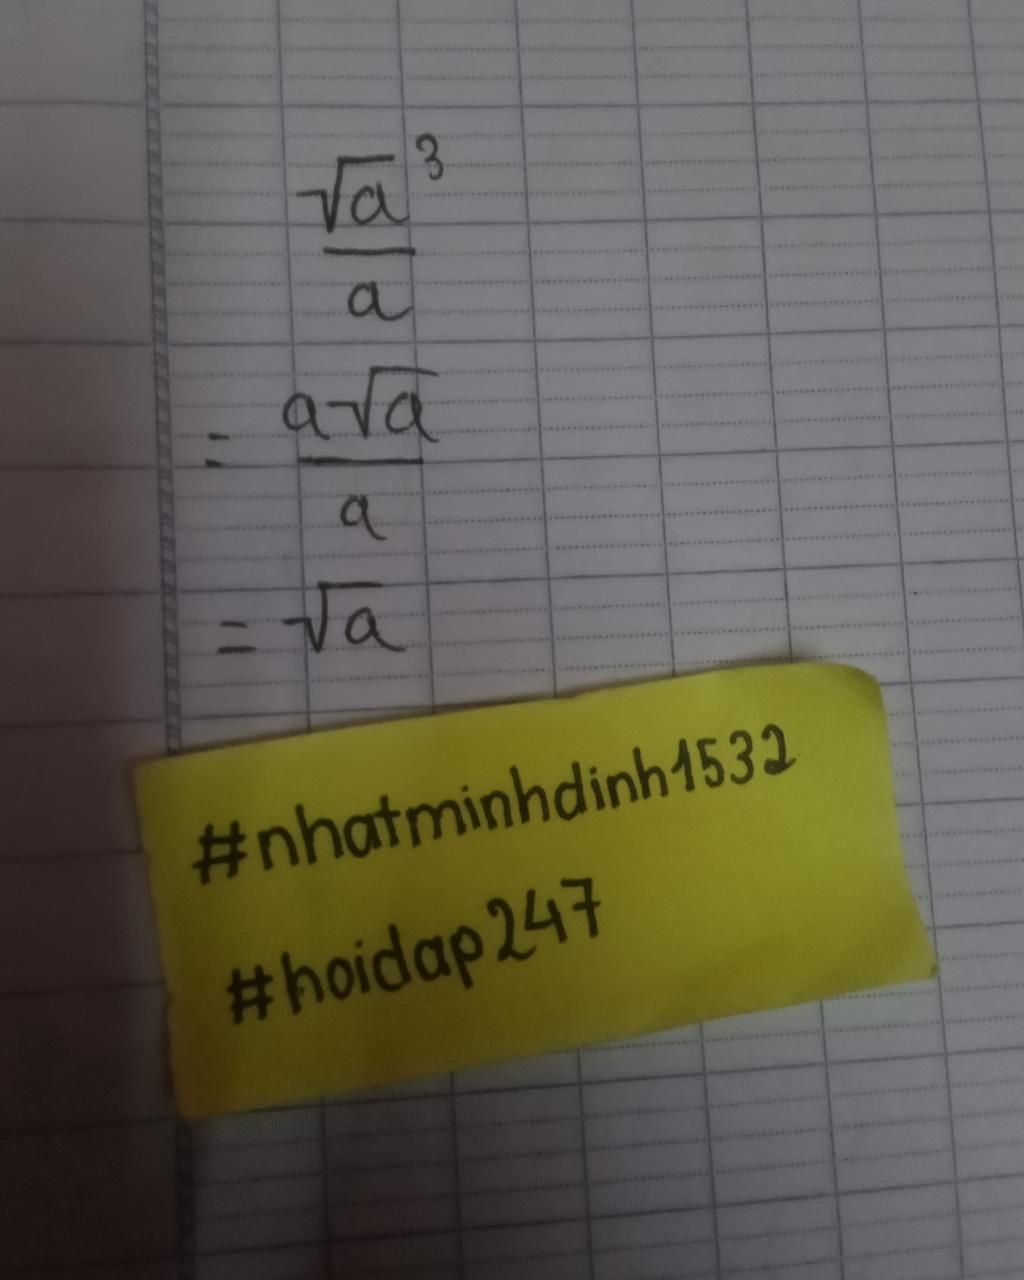 √a³
a
= a√a
a
= √a
#nhatminhdinh1532
#hoidap247